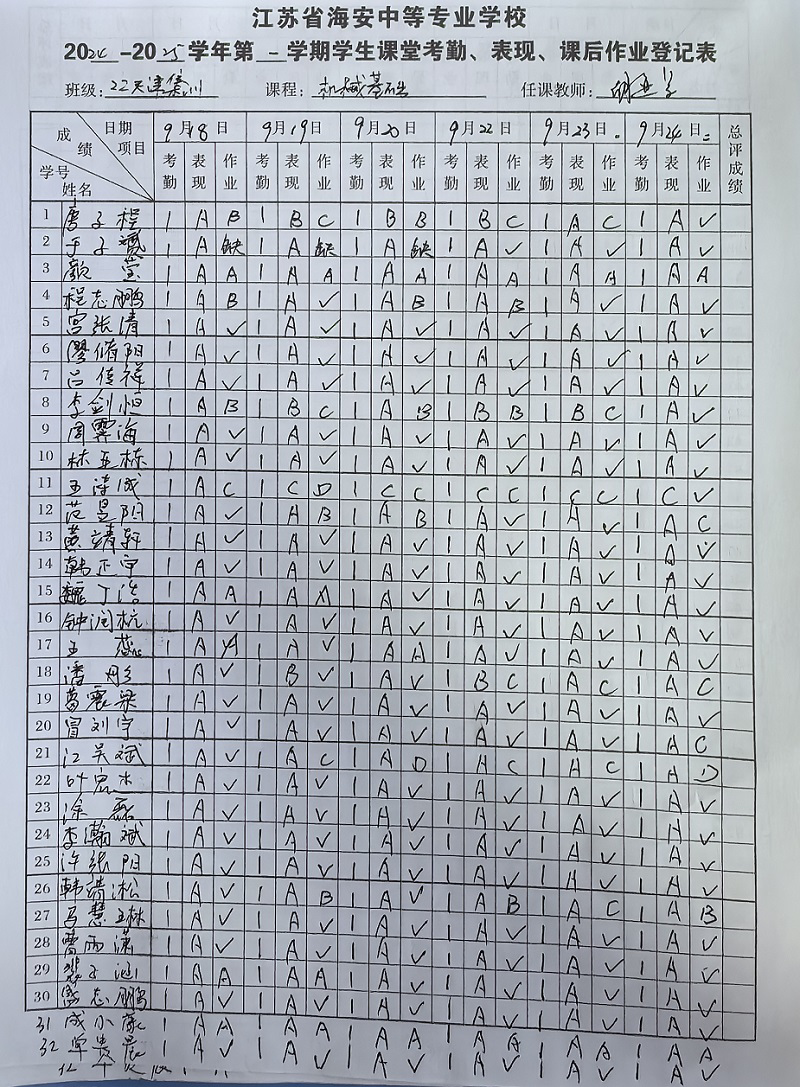 江苏省海安中等专业学校
2024-2025学年第一学期学生课堂考勤、表现、课后作业登记表
班级: 课程:机械基础 任课教师:
成绩 日期 项目 学号 姓名 9月18日 9月19日 9月20日 9月22日 9月23日 9月24日 总评成绩
考勤 表现 作业 考勤 表现 作业 考勤 表现 作业 考勤 表现 作业 考勤 表现 作业 考勤 表现 作业
1 唐子程 1 A B 1 B C 1 B B 1 B C 1 A C 1 A ✓
2 于子 1 A 缺 1 A 缺 1 A 缺 1 A ✓ 1 A ✓ 1 A ✓
3 颜莹 1 A A 1 A A 1 A A 1 A A 1 A A 1 A A
4 程志鹏 1 A B 1 A ✓ 1 A B 1 A B 1 A ✓ 1 A ✓
5 宫张清 1 A ✓ 1 A ✓ 1 A ✓ 1 A ✓ 1 A ✓ 1 A ✓
6 缪脩阳 1 A ✓ 1 A ✓ 1 A ✓ 1 A ✓ 1 A ✓ 1 A ✓
7 吕佳祥 1 A ✓ 1 A ✓ 1 A ✓ 1 A ✓ 1 A ✓ 1 A ✓
8 李剑恒 1 A B 1 B C 1 A B 1 B B 1 B C 1 A ✓
9 周霁海 1 A ✓ 1 A ✓ 1 A ✓ 1 A ✓ 1 A ✓ 1 A ✓
10 林亚栋 1 A ✓ 1 A ✓ 1 A ✓ 1 A ✓ 1 A ✓ 1 A ✓
11 王涛成 1 A C 1 C D 1 C C 1 C C 1 C C 1 C ✓
12 范昱阳 1 A ✓ 1 A B 1 A B 1 A ✓ 1 A ✓ 1 A C
13 黄靖轩 1 A ✓ 1 A ✓ 1 A ✓ 1 A ✓ 1 A ✓ 1 A ✓
14 韩正宇 1 A ✓ 1 A ✓ 1 A ✓ 1 A ✓ 1 A ✓ 1 A ✓
15 魏丁浩 1 A A 1 A 1 A ✓ 1 A ✓ 1 A ✓ 1 A ✓
16 钟润杭 1 A ✓ 1 A ✓ 1 A ✓ 1 A ✓ 1 A ✓ 1 A ✓
17 王蕊 1 A 1 A ✓ 1 A A 1 A ✓ 1 A ✓ 1 A ✓
18 潘彤 1 A ✓ 1 B ✓ 1 A ✓ 1 B C 1 A C 1 A C
19 葛宸梁 1 A ✓ 1 A ✓ 1 A ✓ 1 A ✓ 1 A ✓ 1 A ✓
20 冒刘宇 1 A ✓ 1 A ✓ 1 A ✓ 1 A ✓ 1 A ✓ 1 A C
21 江吴斌 1 A ✓ 1 A C 1 A D 1 A C 1 A C 1 A D
22 叶宏杰 1 A ✓ 1 A ✓ 1 A ✓ 1 A ✓ 1 A ✓ 1 A ✓
23 涂磊 1 A ✓ 1 A ✓ 1 A ✓ 1 A ✓ 1 A ✓ 1 A ✓
24 李瀚斌 1 A ✓ 1 A ✓ 1 A ✓ 1 A ✓ 1 A ✓ 1 A ✓
25 许张阳 1 A ✓ 1 A ✓ 1 A ✓ 1 A ✓ 1 A ✓ 1 A ✓
26 韩靖淞 1 A ✓ 1 A B 1 A ✓ 1 A B 1 A C 1 A B
27 马慧林 1 A ✓ 1 A ✓ 1 A ✓ 1 A ✓ 1 A ✓ 1 A ✓
28 曹雨潇 1 A ✓ 1 A ✓ 1 A ✓ 1 A ✓ 1 A ✓ 1 A ✓
29 子涵 1 A A 1 A A 1 A ✓ 1 A ✓ 1 A ✓ 1 A ✓
30 志鹏 1 A ✓ 1 A ✓ 1 A ✓ 1 A ✓ 1 A ✓ 1 A ✓
31 成小 1 A A 1 A A 1 A A 1 A A 1 A A 1 A A
32 单贵晨 1 A ✓ 1 A ✓ 1 A ✓ 1 A ✓ 1 A ✓ 1 A ✓